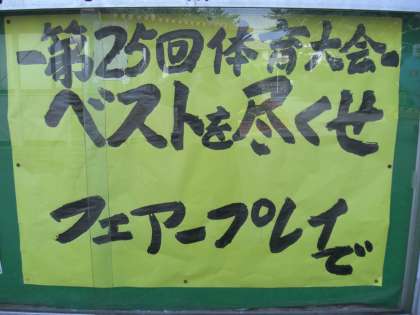 -第25回体育大会-
ベストを尽くせ
フェアープレイで